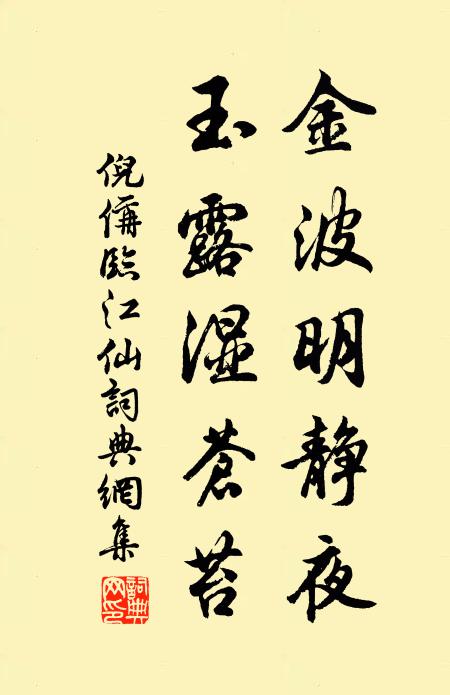 金波明静夜
玉露湿蒼苔
倪偁臨江仙詞典網集
詞典網印